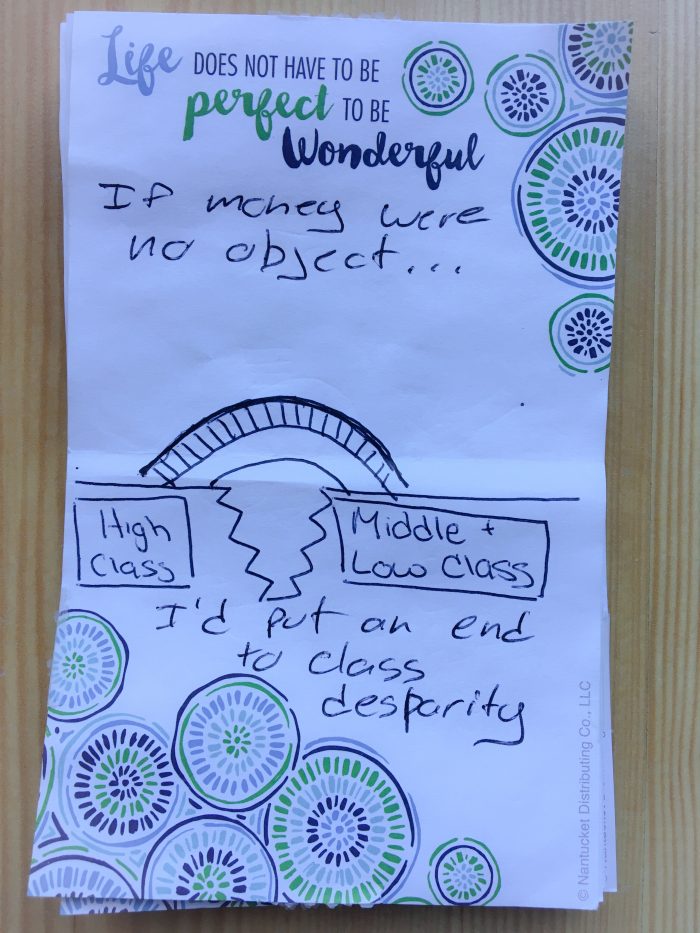 Life DOES NOT HAVE TO BE
perfect TO BE
Wonderful
If money were
no object...
High
Class
Middle +
Low Class
I'd put an end
to class
desparity
© Nantucket Distributing Co., LLC